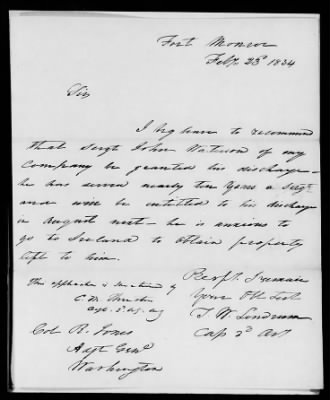 Fort Monroe
Feby. 23d 1834
Sir
I beg leave to recommend
that Sergt John Watson of my
Company be granted his discharge —
he has served nearly ten years a Sergt
and will be entitled to his discharge
in August next — he is anxious to
go to Ireland to obtain property
left to him.
Respf. I remain
Your Obt Sert
T. W. Lendrum
Cap 3d Art
This application is sanctioned by
Col. R. Jones
Adjt Genl
Washington